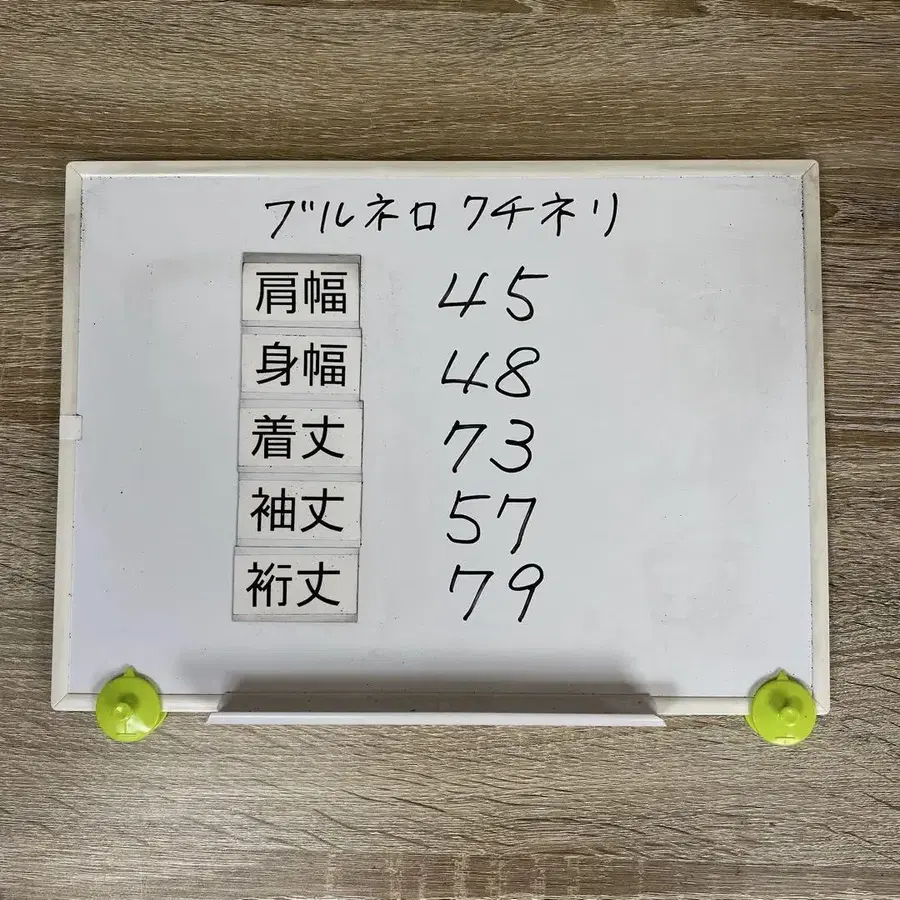 ブルネロ クチネリ
肩幅 45
身幅 48
着丈 73
袖丈 57
裄丈 79